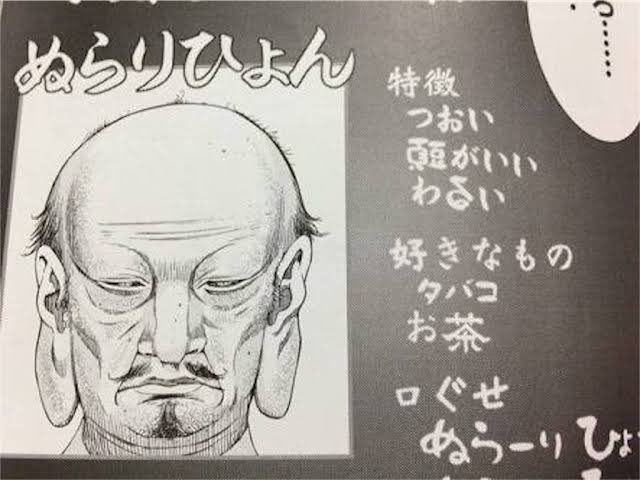 ぬらりひょん
特徴
つおい
頭がいい
わるい
好きなもの
タバコ
お茶
口ぐせ
ぬらーりひょ
……